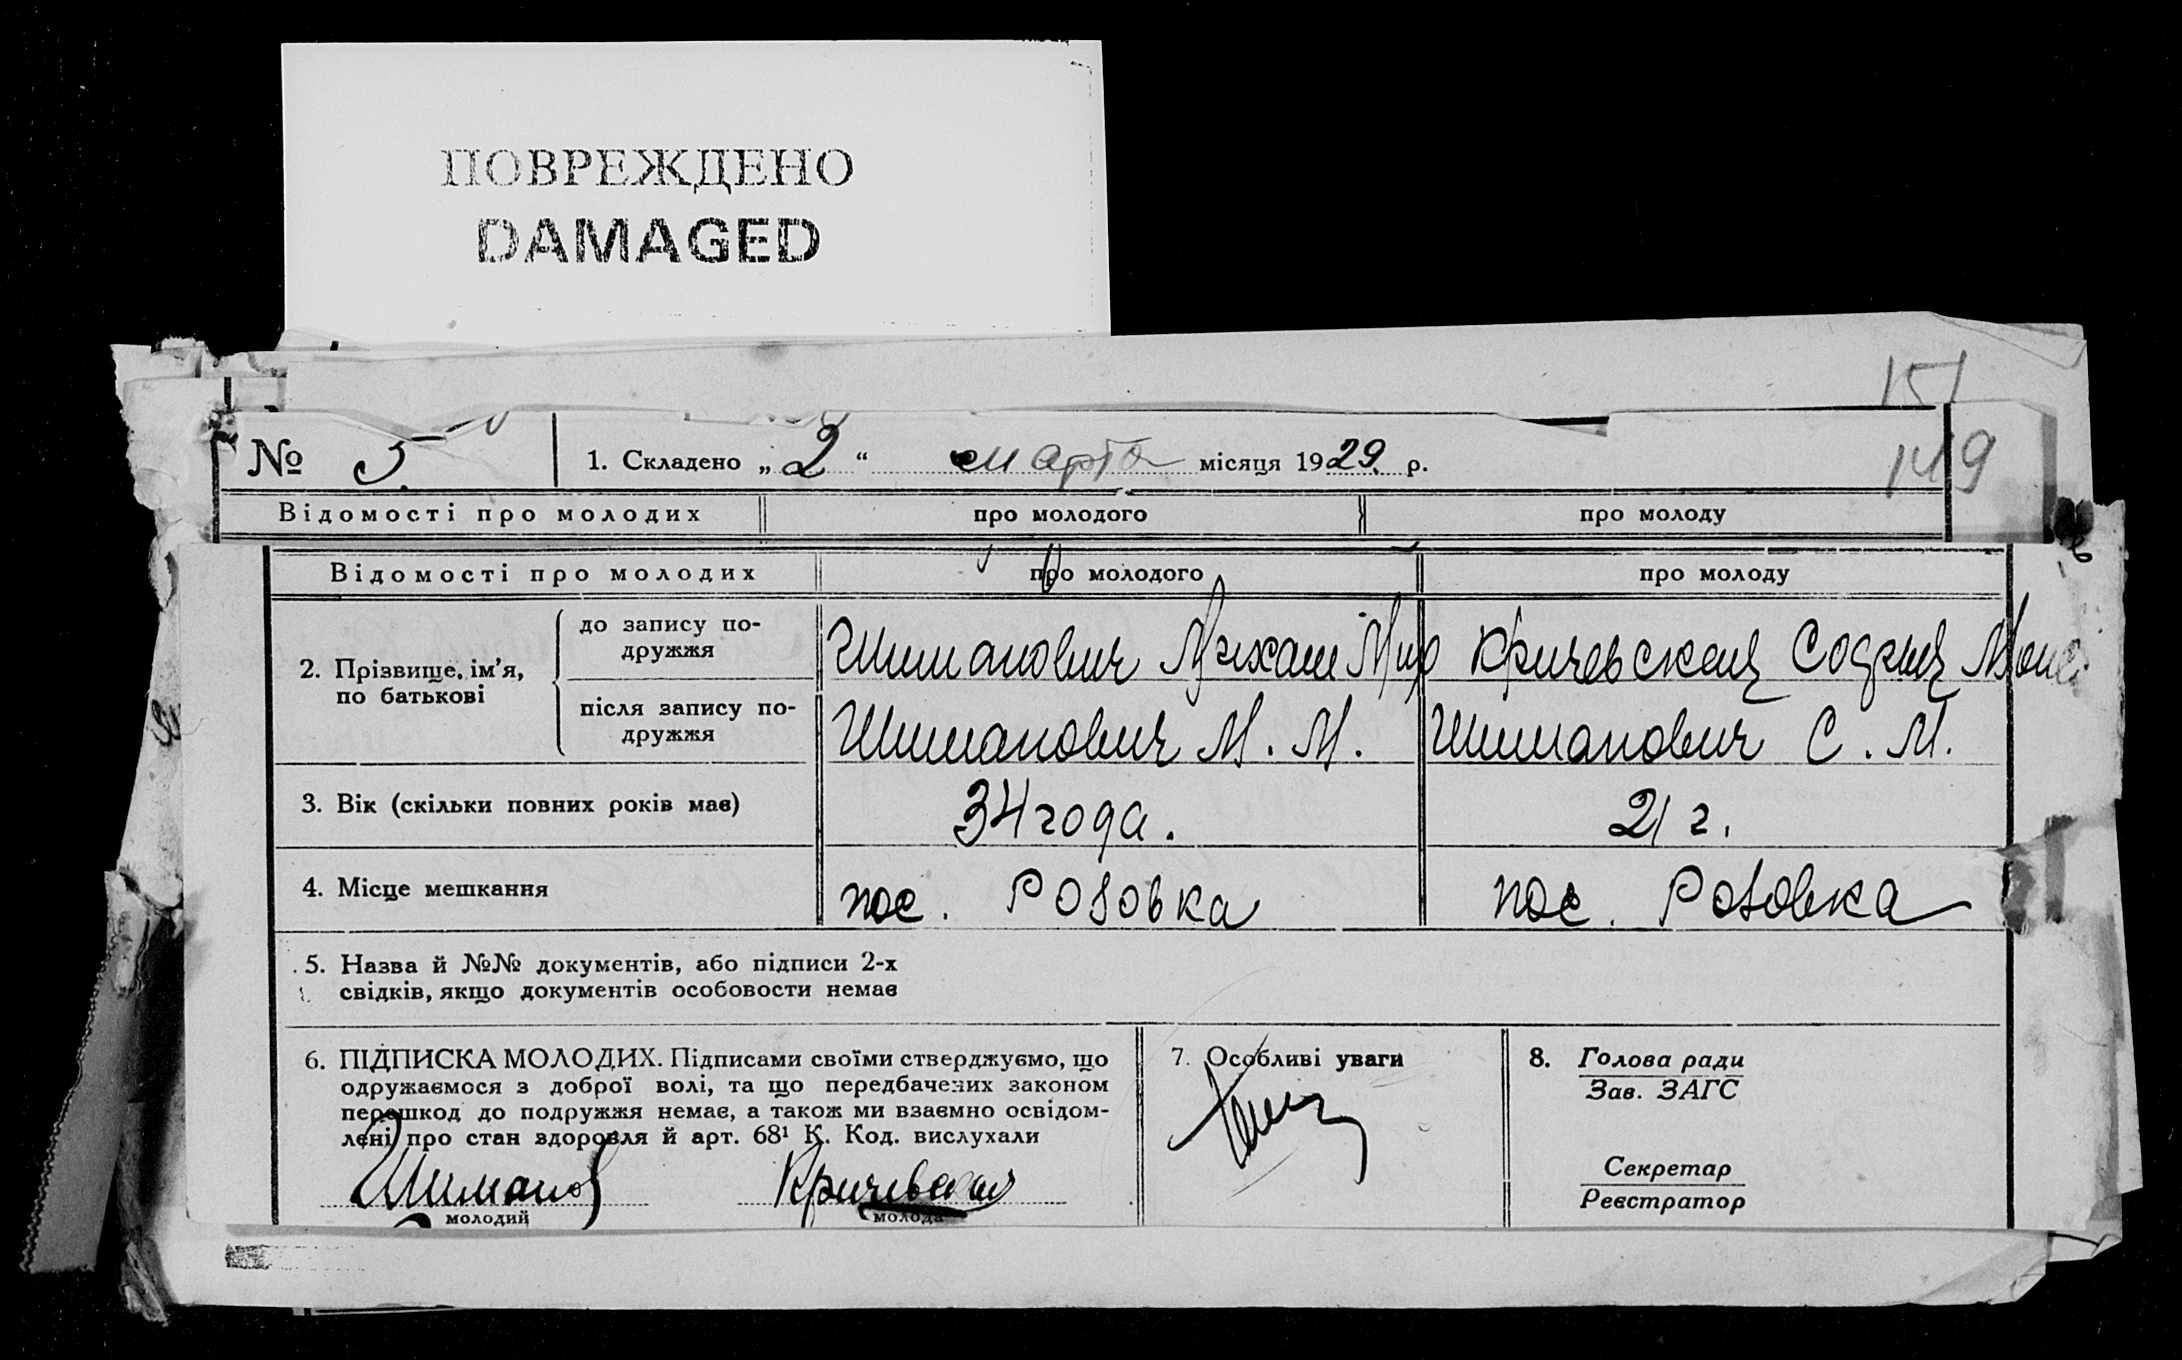 ПОВРЕЖДЕНО
DAMAGED
151
№ 5. 1. Складено „ 2 “ марта місяця 1929. р.
149
Відомості про молодих про молодого про молоду
Відомості про молодих про молодого про молоду
2. Прізвище, ім’я, по батькові
до запису подружжя Шиманович Кричевская Мои
після запису подружжя Шиманович М. М. Шиманович С. М.
3. Вік (скільки повних років має) 34 года. 21 г.
4. Місце мешкання пос. Розовка пос. Розовка
5. Назва й №№ документів, або підписи 2-х
свідків, якщо документів особовости немає
6. ПІДПИСКА МОЛОДИХ. Підписами своїми стверджуємо, що
одружаємося з доброї волі, та що передбачених законом
перешкод до подружжя немає, а також ми взаємно освідом-
лені про стан здоровля й арт. 68¹ К. Код. вислухали
Шиманов Кричевская
молодий молода
7. Особливі уваги
8. Голова ради
Зав. ЗАГС
Секретар
Реєстратор